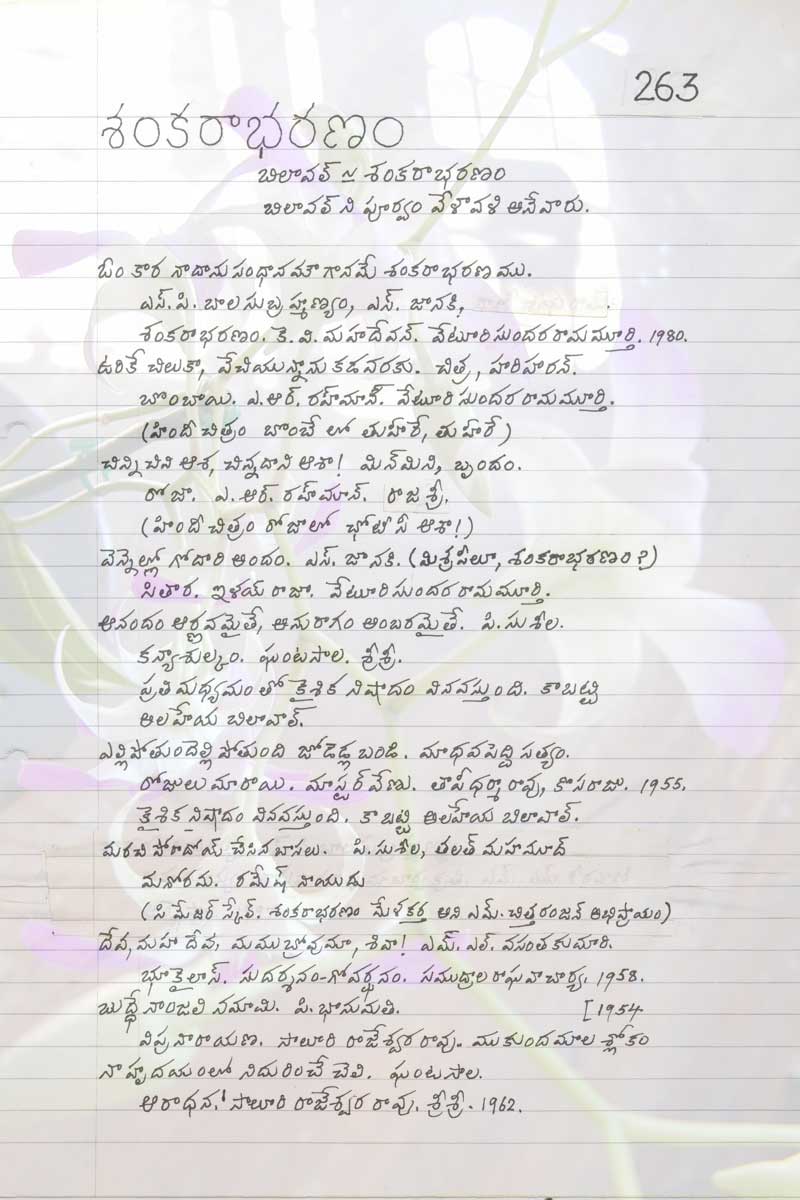 263
శంకరాభరణం
బిలావల్ ~ శంకరాభరణం
బిలావల్ ని పూర్వం వేళావళి అనేవారు.
ఓం కార నాదాను సంధానమౌ గానమే శంకరాభరణము.
ఎస్.పి. బాలసుబ్రహ్మణ్యం, ఎస్. జానకి,
శంకరాభరణం. కె.వి.మహదేవన్. వేటూరి సుందరరామమూర్తి. 1980.
ఉరికే చిలుకా, వేచియున్నాను కడవరకు. చిత్ర, హరిహరన్.
బొంబాయి. ఎ.ఆర్. రహ్మాన్. వేటూరి సుందర రామమూర్తి.
(హిందీ చిత్రం బొంబే లో తుహీరే, తుహీరే)
చిన్ని చిని ఆశ, చిన్నదాని ఆశా! మిన్మిని, బృందం.
రోజా. ఎ.ఆర్. రహ్మాన్. రాజశ్రీ.
(హిందీ చిత్రం రోజాలో ఛోటీ సీ ఆశా!)
వెన్నెల్లో గోదారి అందం. ఎస్. జానకి. (మిశ్రపీలూ, శంకరాభరణం ?)
సితార. ఇళయ్ రాజా. వేటూరి సుందర రామమూర్తి.
ఆనందం అర్ణవమైతే, అనురాగం అంబరమైతే. పి.సుశీల.
కన్యాశుల్కం. ఘంటసాల. శ్రీశ్రీ.
ప్రతి మధ్యమం తో కైశిక నిషాదం వినవస్తుంది. కాబట్టి
అలహేయ బిలావాల్.
ఎల్లిపోతుందెల్లి పోతుంది జోడెడ్ల బండి. మాధవపెద్ది సత్యం.
రోజులు మారాయి. మాస్టర్ వేణు. తాపీధర్మారావు, కొసరాజు. 1955.
కైశిక నిషాదం వినవస్తుంది. కాబట్టి అలహేయ బిలావాల్.
మరచి పోరాదోయ్ చేసిన బాసలు. పి.సుశీల, తలత్ మహమూద్
మనోరమ. రమేష్ నాయుడు
(సి మేజర్ స్కేల్. శంకరాభరణం మేళకర్త అని ఎమ్.చిత్తరంజన్ అభిప్రాయం)
దేవ, మహా దేవ, మము బ్రోవుమా, శివా! ఎమ్.ఎల్. వసంతకుమారి.
భూకైలాస్. సుదర్శనం-గోవర్ధనం. సముద్రాల రాఘవాచార్య. 1958.
బుద్ధే నాంజలి నమామి. పి.భానుమతి. [1954.
విప్రనారాయణ. సాలూరి రాజేశ్వర రావు. ముకుందమాల శ్లోకం
నా హృదయంలో నిదురించే చెలి. ఘంటసాల.
ఆరాధన. సాలూరి రాజేశ్వర రావు. శ్రీశ్రీ. 1962.